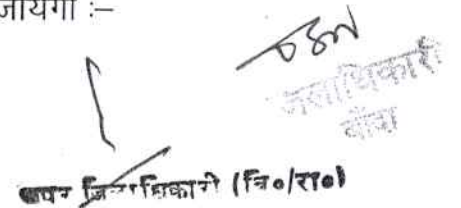 जायेगा :–
जिलाधिकारी
बाँदा
अपर जिलाधिकारी (वि०/रा०)